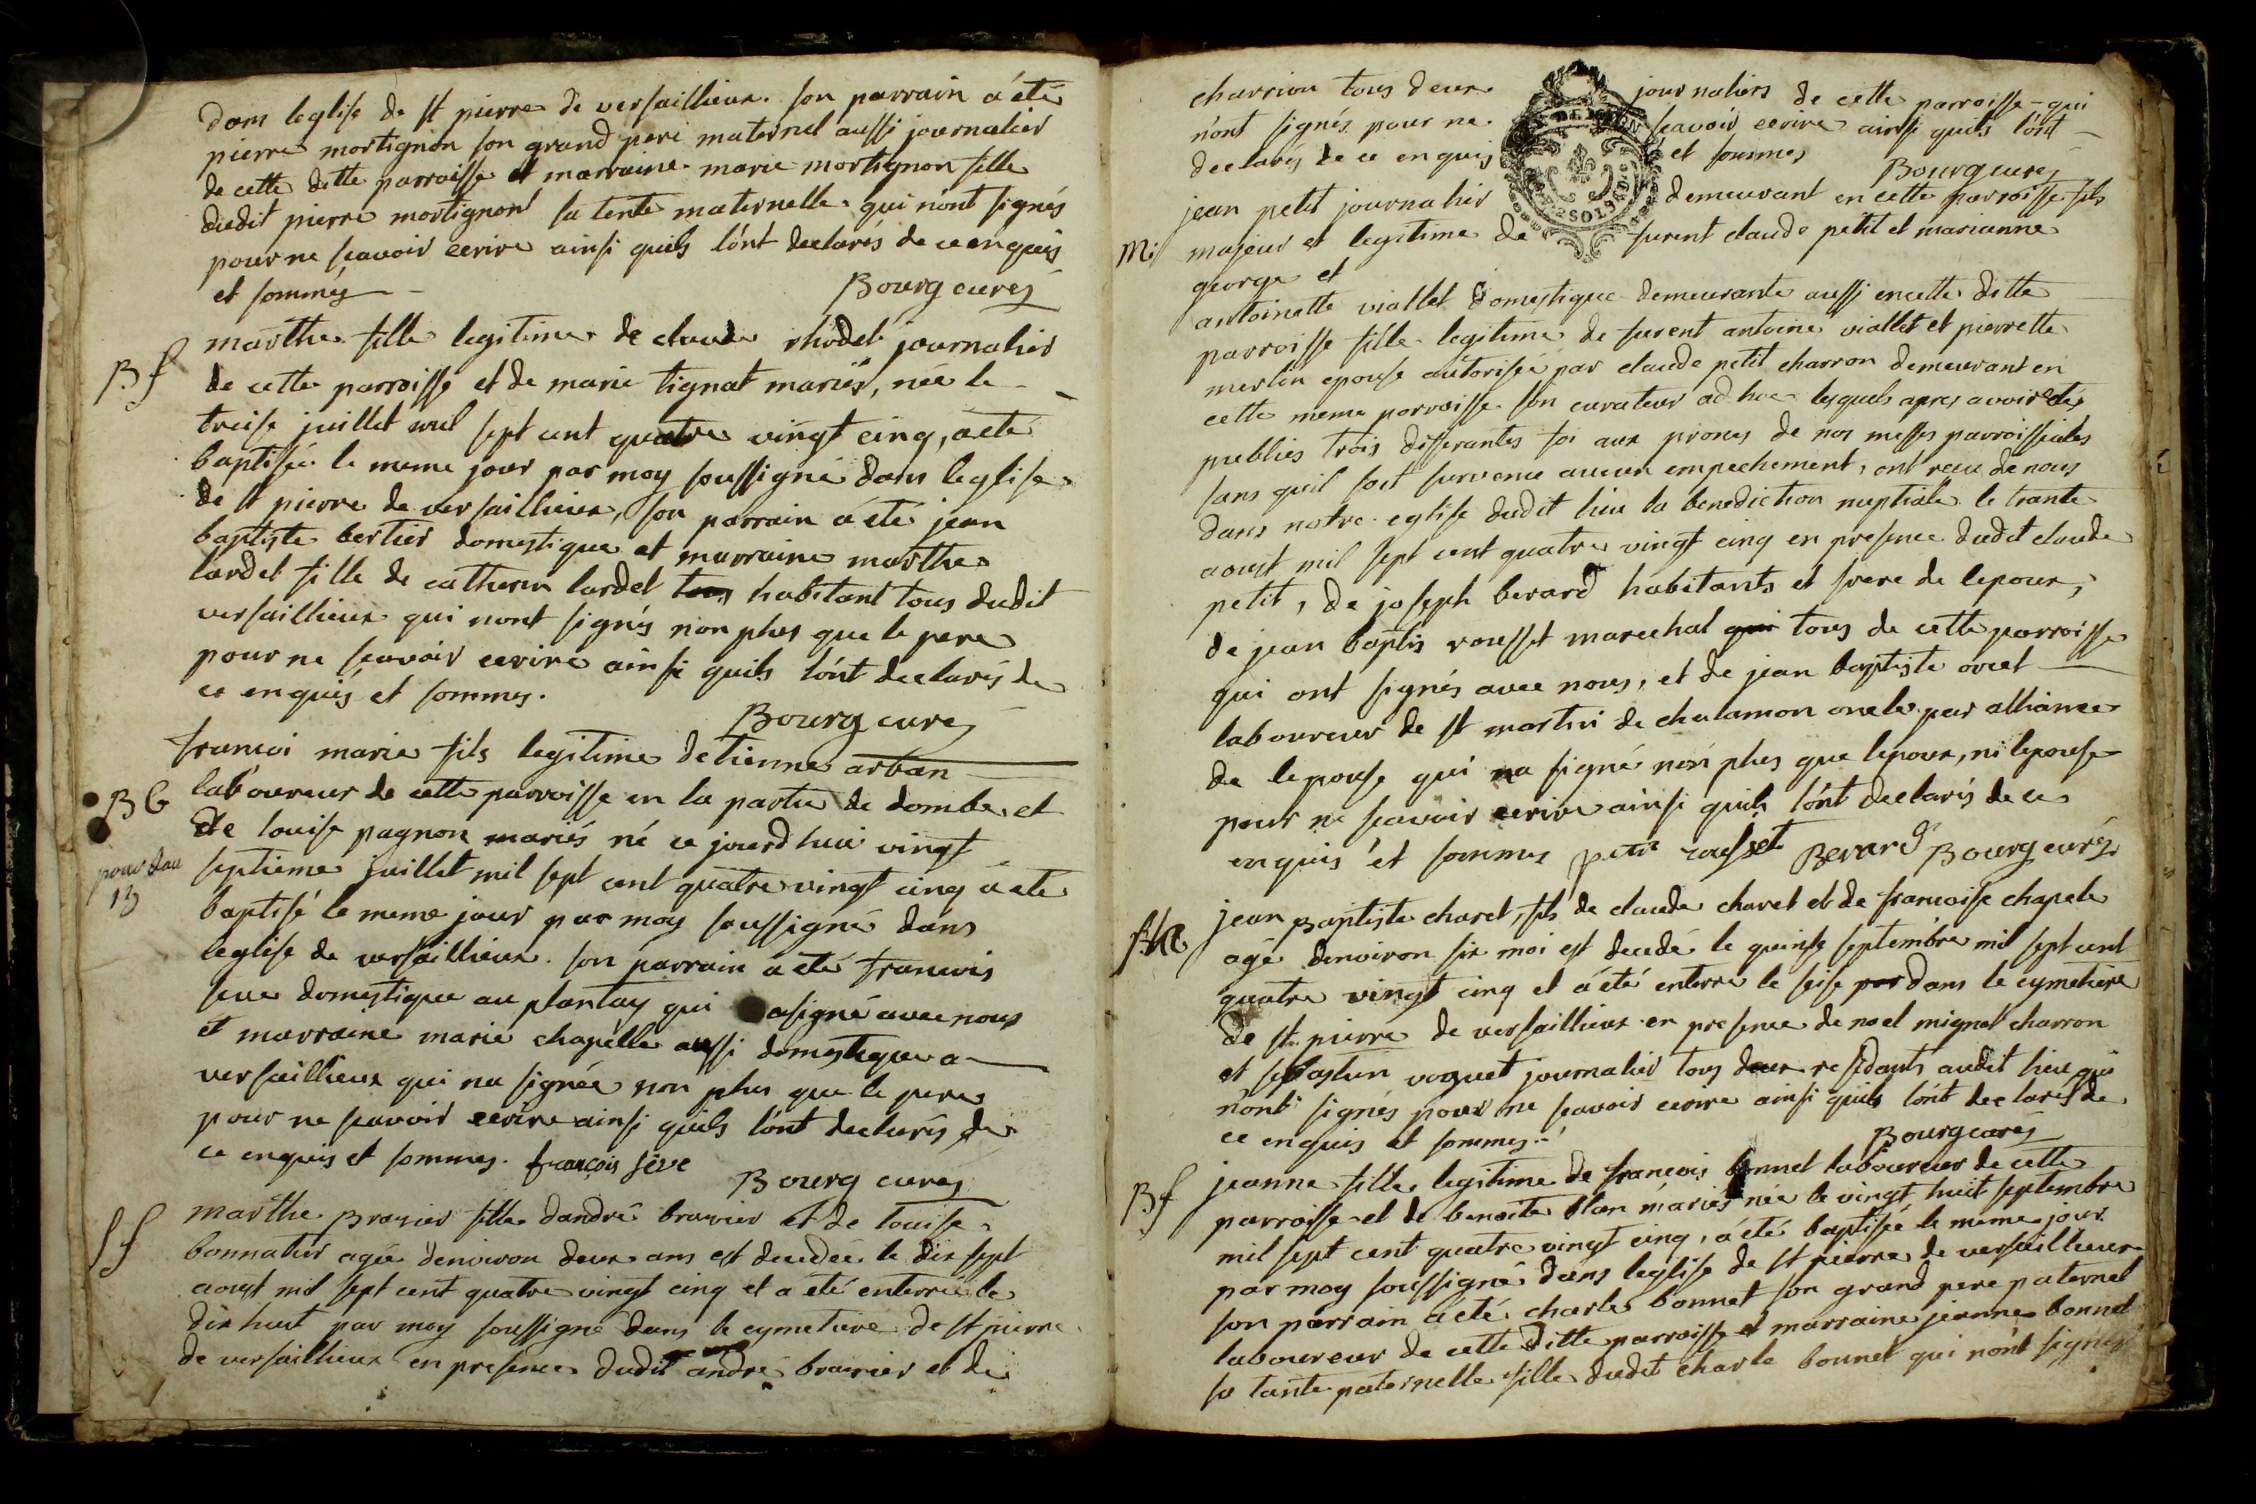 dans leglise de st pierre de versaillieux. son parrain á été
pierre mortignon son grand pere maternel aussi journalier
de cette ditte parroisse et marraine marie mortignon fille
dudit pierre mortignon sa tente maternelle qui nónt signés
pour ne scavoir ecrire ainsi quils lónt declarés de ce enquis
et sommés
Bourg curé
B f
marthe fille legitime de claude rhodet journalier
de cette parroisse et de marie tignat mariés, née le
treise juillet mil sept cent quatre vingt cinq, a eté
baptisée le meme jour par moy soussigné dans leglise
de st pierre de versaillieux, son parrain á été jean
baptiste bertier domestique et marraine marthe
lardet fille de catherin lardet tous habitant tous dudit
versaillieux qui nont signés non plus que le pere
pour ne scavoir ecrire ainsi quils lónt declarés de
ce enquis et sommes.
Bourg curé
francoi marie fils legitime detienne arban
B G
laboureur de cette parroisse en la partie de dombe et
de louise pagnon mariés né ce jourdhui vingt
septieme juillet mil sept cent quatre vingt cinq a eté
13
baptisé le meme jour par moy soussigné dans
leglise de versaillieux. son parrain á eté francois
seve domestique au plantay qui a signé avec nous
et marraine marie chapelle aussi domestique a
versaillieux qui na signée non plus que le pere
pour ne scavoir ecrire ainsi quils lónt declarés de
ce enquis et sommes. françois séve
Bourg curé
S f
marthe Brasier fille dandré brasier et de louise
bonnatier agée denviron deux ans est decedée le dix sept
aoust mil sept cent quatre vingt cinq et a eté enterrée le
dix huit par moy soussigné dans le cymetiere de st pierre
de versaillieux en presence dudit andré brasier et de
charrion tous deux journaliers de cette parroisse qui
nónt signés pour ne scavoir ecrire ainsi quils lónt
declarés de ce enquis et sommes
Bourg curé
jean petit journalier demeurant en cette parroisse fils
M
majeur et legitime de furent claude petit et marianne
george et
antoinette viallet domestique demeurante aussi en cette ditte
parroisse fille legitime de furent antoine viallet et pierrette
merlin epouse autorisée par claude petit charron demeurant en
cette meme parroisse son curateur ad hoc lesquels apres avoir etés
publiés trois differantes foi aux prones de nos messes parroissiales
sans quil soit survenu aucun empechement, ont recu de nous
dans notre eglise dudit lieu la benediction nuptiale le trante
aoust mil sept cent quatre vingt cinq en presence dudit claude
petit, de joseph berard habitants et frere de lepoux,
de jean baptis rousset marechal qui tous de cette parroisse
qui ont signés avec nous, et de jean baptiste ovret
laboureur de st martin de chalamon oncle par alliance
de lepouse qui na signé non plus que lepoux, ni lepouse
pour ne scavoir ecrire ainsi quils lónt declarés de ce
enquis et sommes petit rousset Berard Bourg curé
jean Baptiste charet, fils de claude charet et de francoise chapele
agé denviron six moi est decedé le quinse septembre mil sept cent
quatre vingt cinq et á été enterré le seise par dans le cymetiere
de st pierre de versaillieux en presence de noel mignot charron
et sebastien voguet journalier tous deux residants audit lieu qui
nónt signés pour ne scavoir ecrire ainsi quils lónt declarés de
ce enquis et sommes.
Bourg curé
B f
jeanne fille legitime de francois bonnet laboureur de cette
parroisse et de benoite blan mariés née le vingt huit septembre
mil sept cent quatre vingt cinq, á été baptisée le meme jour
par moy soussigné dans leglise de st pierre de versaillieux
son parrain á eté charles bonnet son grand pere paternel
laboureur de cette ditte parroisse et marraine jeanne bonnet
sa tante paternelle fille dudit charle bonnet qui nónt signés